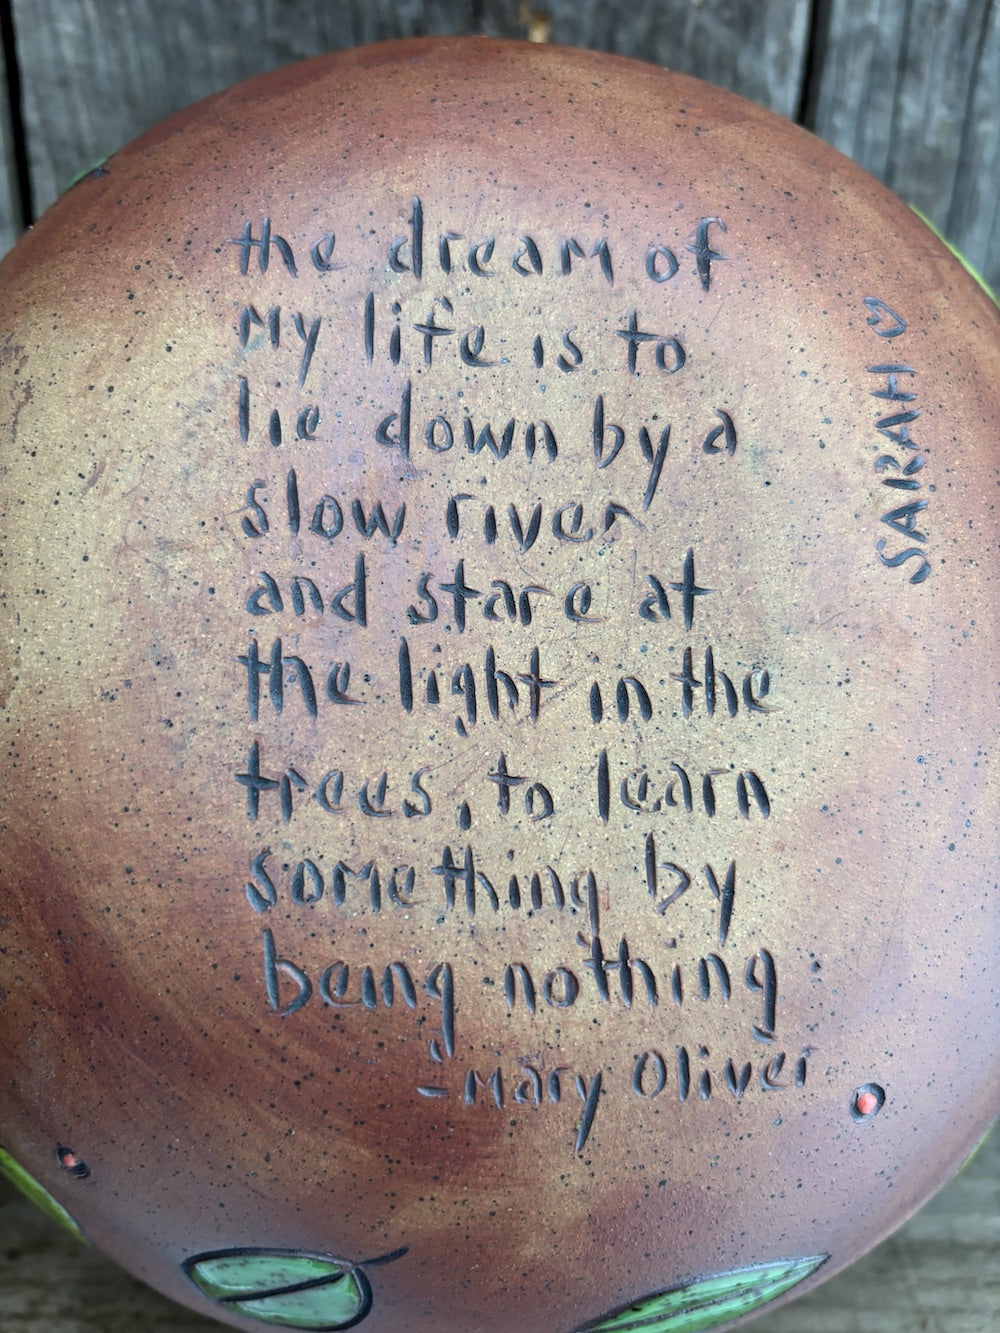 the dream of
my life is to
lie down by a
slow river
and stare at
the light in the
trees, to learn
something by
being nothing
-Mary Oliver
SARAH ♡